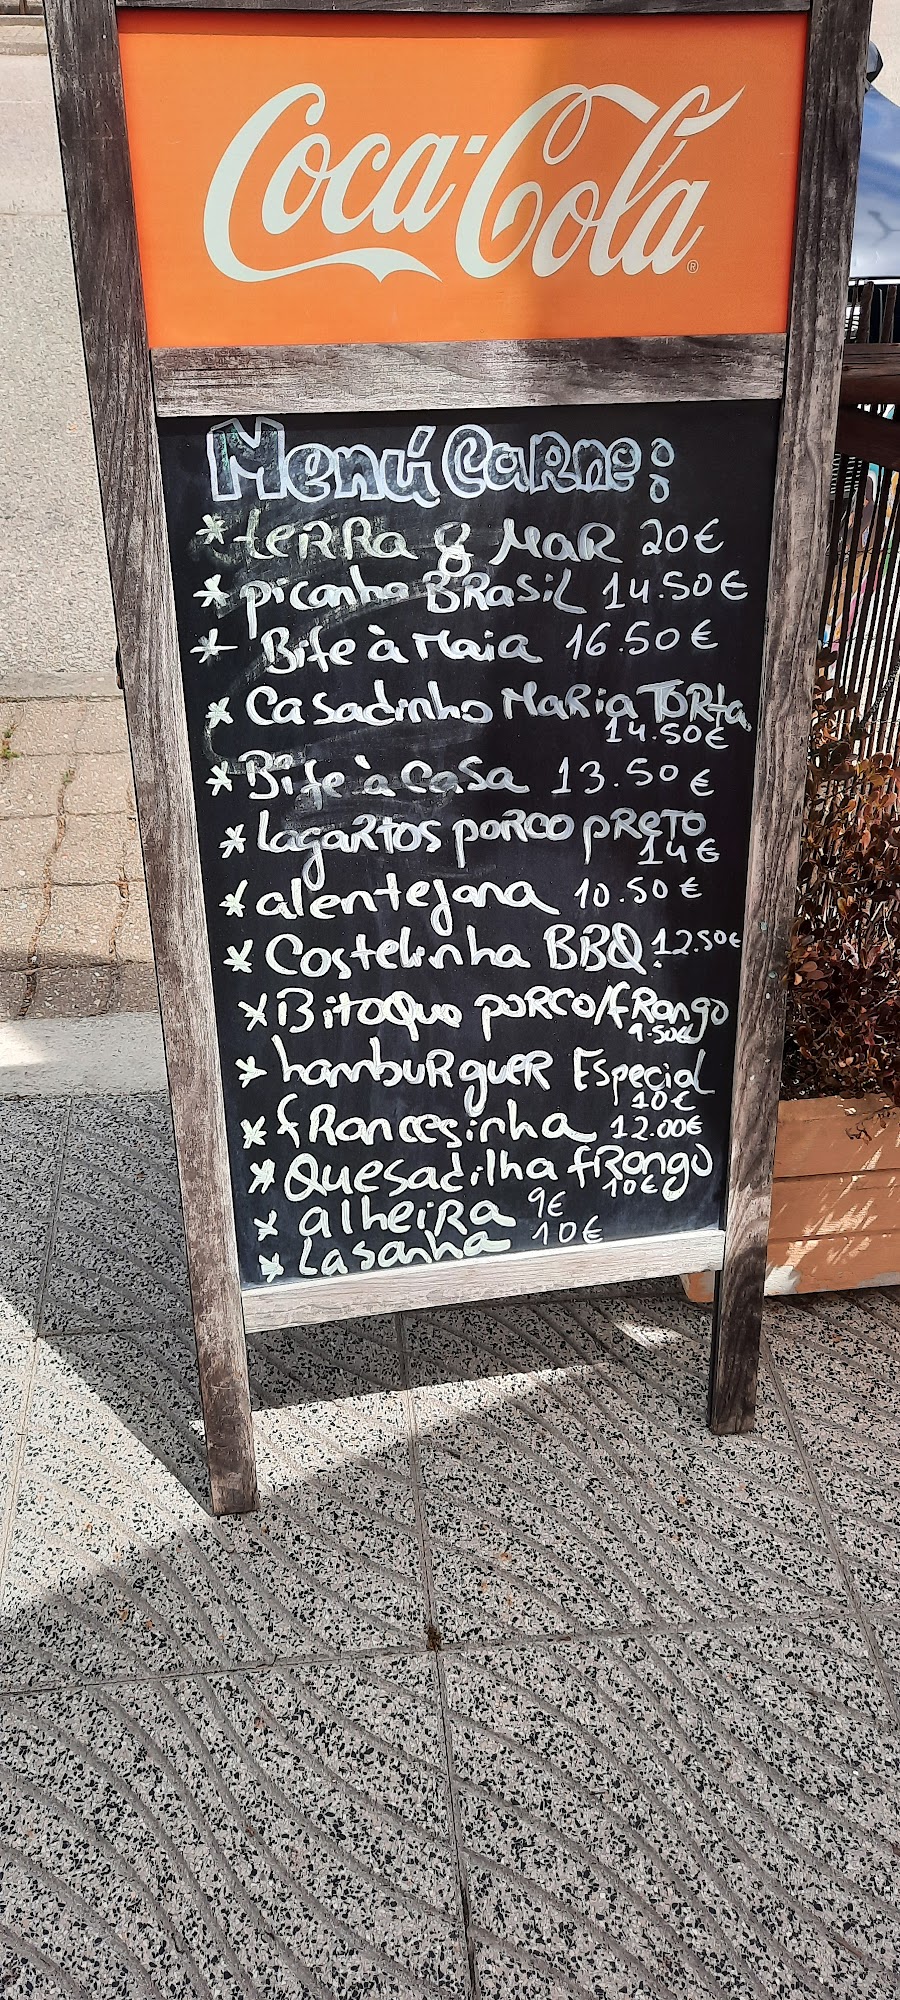 Coca-Cola
®
Menú Carne:
* terra & Mar 20€
* picanha Brasil 14.50€
* Bife à Maia 16.50€
* Casadinho Maria Torta
14.50€
* Bife à Casa 13.50€
* lagartos porco preto
14€
* alentejana 10.50€
* Costelinha BBQ 12.50€
* Bitoque porco/frango
9.50€
* hamburguer Especial
10€
* francesinha 12.00€
* Quesadilha frango
10€
* alheira 9€
* Lasanha 10€